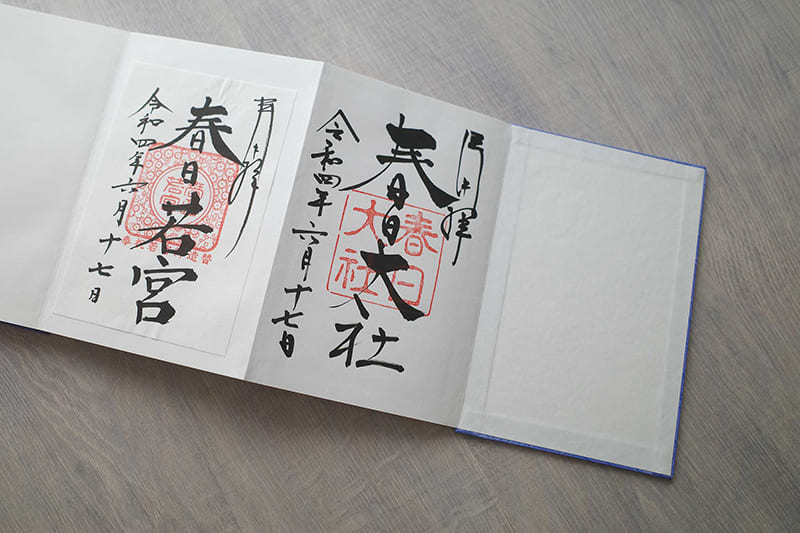 奉拝
春日大社
春日大社
令和四年六月十七日
奉拝
春日若宮
令和四年六月十七日